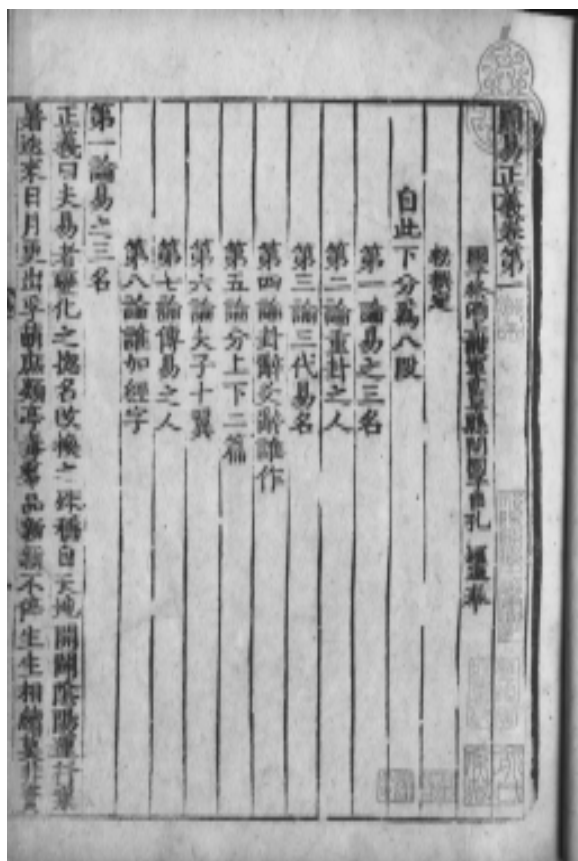 周易正義卷第一
國子祭酒上護軍曲阜縣開國子臣孔穎達奉
勑撰定
自此下分爲八段
第一論易之三名
第二論重卦之人
第三論三代易名
第四論卦辭爻辭誰作
第五論分上下二篇
第六論夫子十翼
第七論傳易之人
第八論誰加經字
第一論易之三名
正義曰夫易者變化之揔名改換之殊稱自天地開闢陰陽運行寒
暑迭來日月更出孚萌庶類亭毒羣品新新不停生生相續莫非資